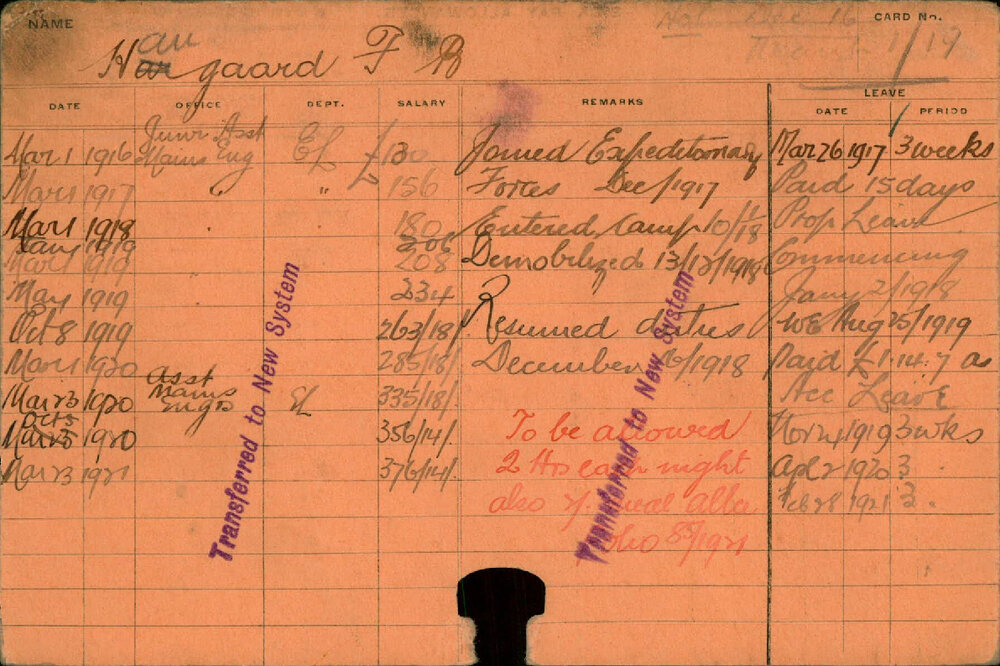 NAME
CARD No.
1/19
Haugaard F B
DATE OFFICE DEPT. SALARY REMARKS LEAVE
DATE PERIOD
Junr Asst
Mar 1 1916 Mains Eng EL £130 Joined Expeditionary Mar 26 1917 3 weeks
Mar 1 1917 " " £156 Forces Dec/1917 Paid 15 days
Mar 1 1918 180 Entered Camp 10/1/18 Prop Leave
Jany 1919 206
Mar 1 1919 208 Demobilized 13/12/1918 Commencing
May 1919 234 Jany 2/1918
Oct 8 1919 263/18/ Resumed duties WE Aug 25/1919
Mar 1 1920 285/18/ December 16/1918 Paid £1.14.7 a/s
Asst
Mar 23 1920 Mains Engs EL 335/18/ Acc Leave
Oct 5
Mar 23 1920 356/14/. To be allowed Nov 24 1919 3 wks
Mar 23 1921 376/14/. 2 Hrs each night Apl 2 1920 3
also meal Allce Feb 28 1921 3.
8/1921
Transferred to New System
Transferred to New System